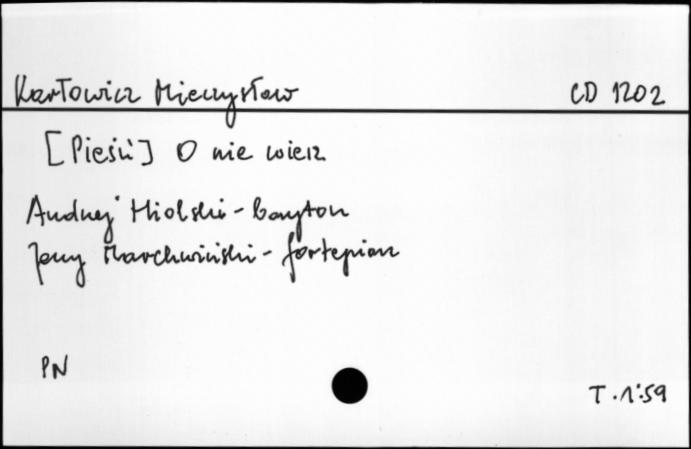 Karłowicz Mieczysław CD 1202
[Pieśń] O nie wierz
Andrzej Hiolski - baryton
Jerzy Marchwiński - fortepian
PN
T. 1:59